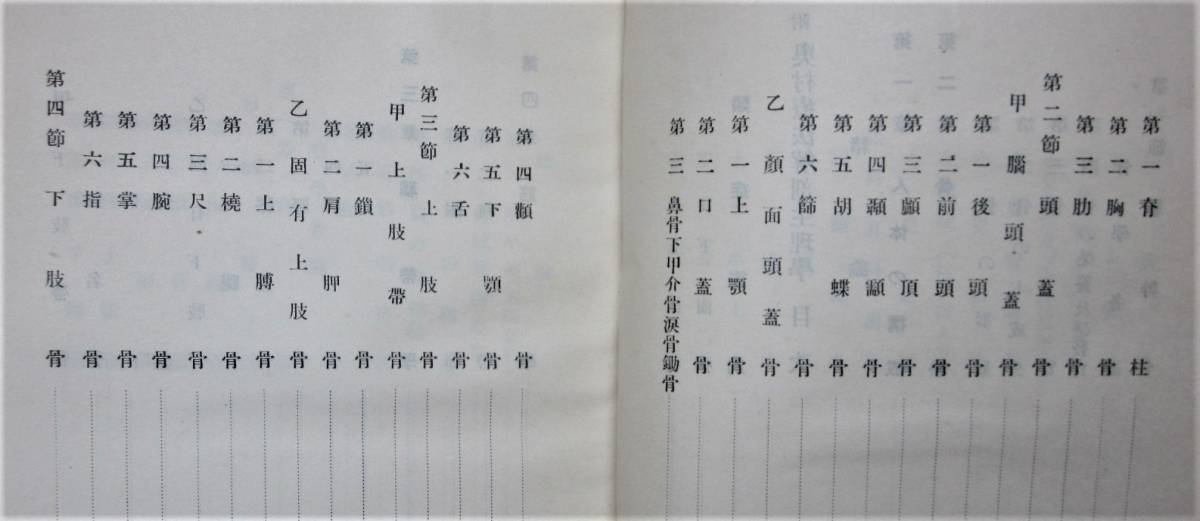 第一脊柱
第二胸骨
第三肋骨
第二節 頭蓋骨
甲 腦頭蓋骨
第一後頭骨
第二前頭骨
第三顱頂骨
第四顳顬骨
第五胡蝶骨
第六篩骨
乙 顏面頭蓋骨
第一上顎骨
第二口蓋骨
第三鼻骨下甲介骨淚骨鋤骨
第四顴骨
第五下顎骨
第六舌骨
第三節 上肢骨
甲 上肢帶骨
第一鎖骨
第二肩胛骨
乙 固有上肢骨
第一上膊骨
第二橈骨
第三尺骨
第四腕骨
第五掌骨
第六指骨
第四節 下肢骨